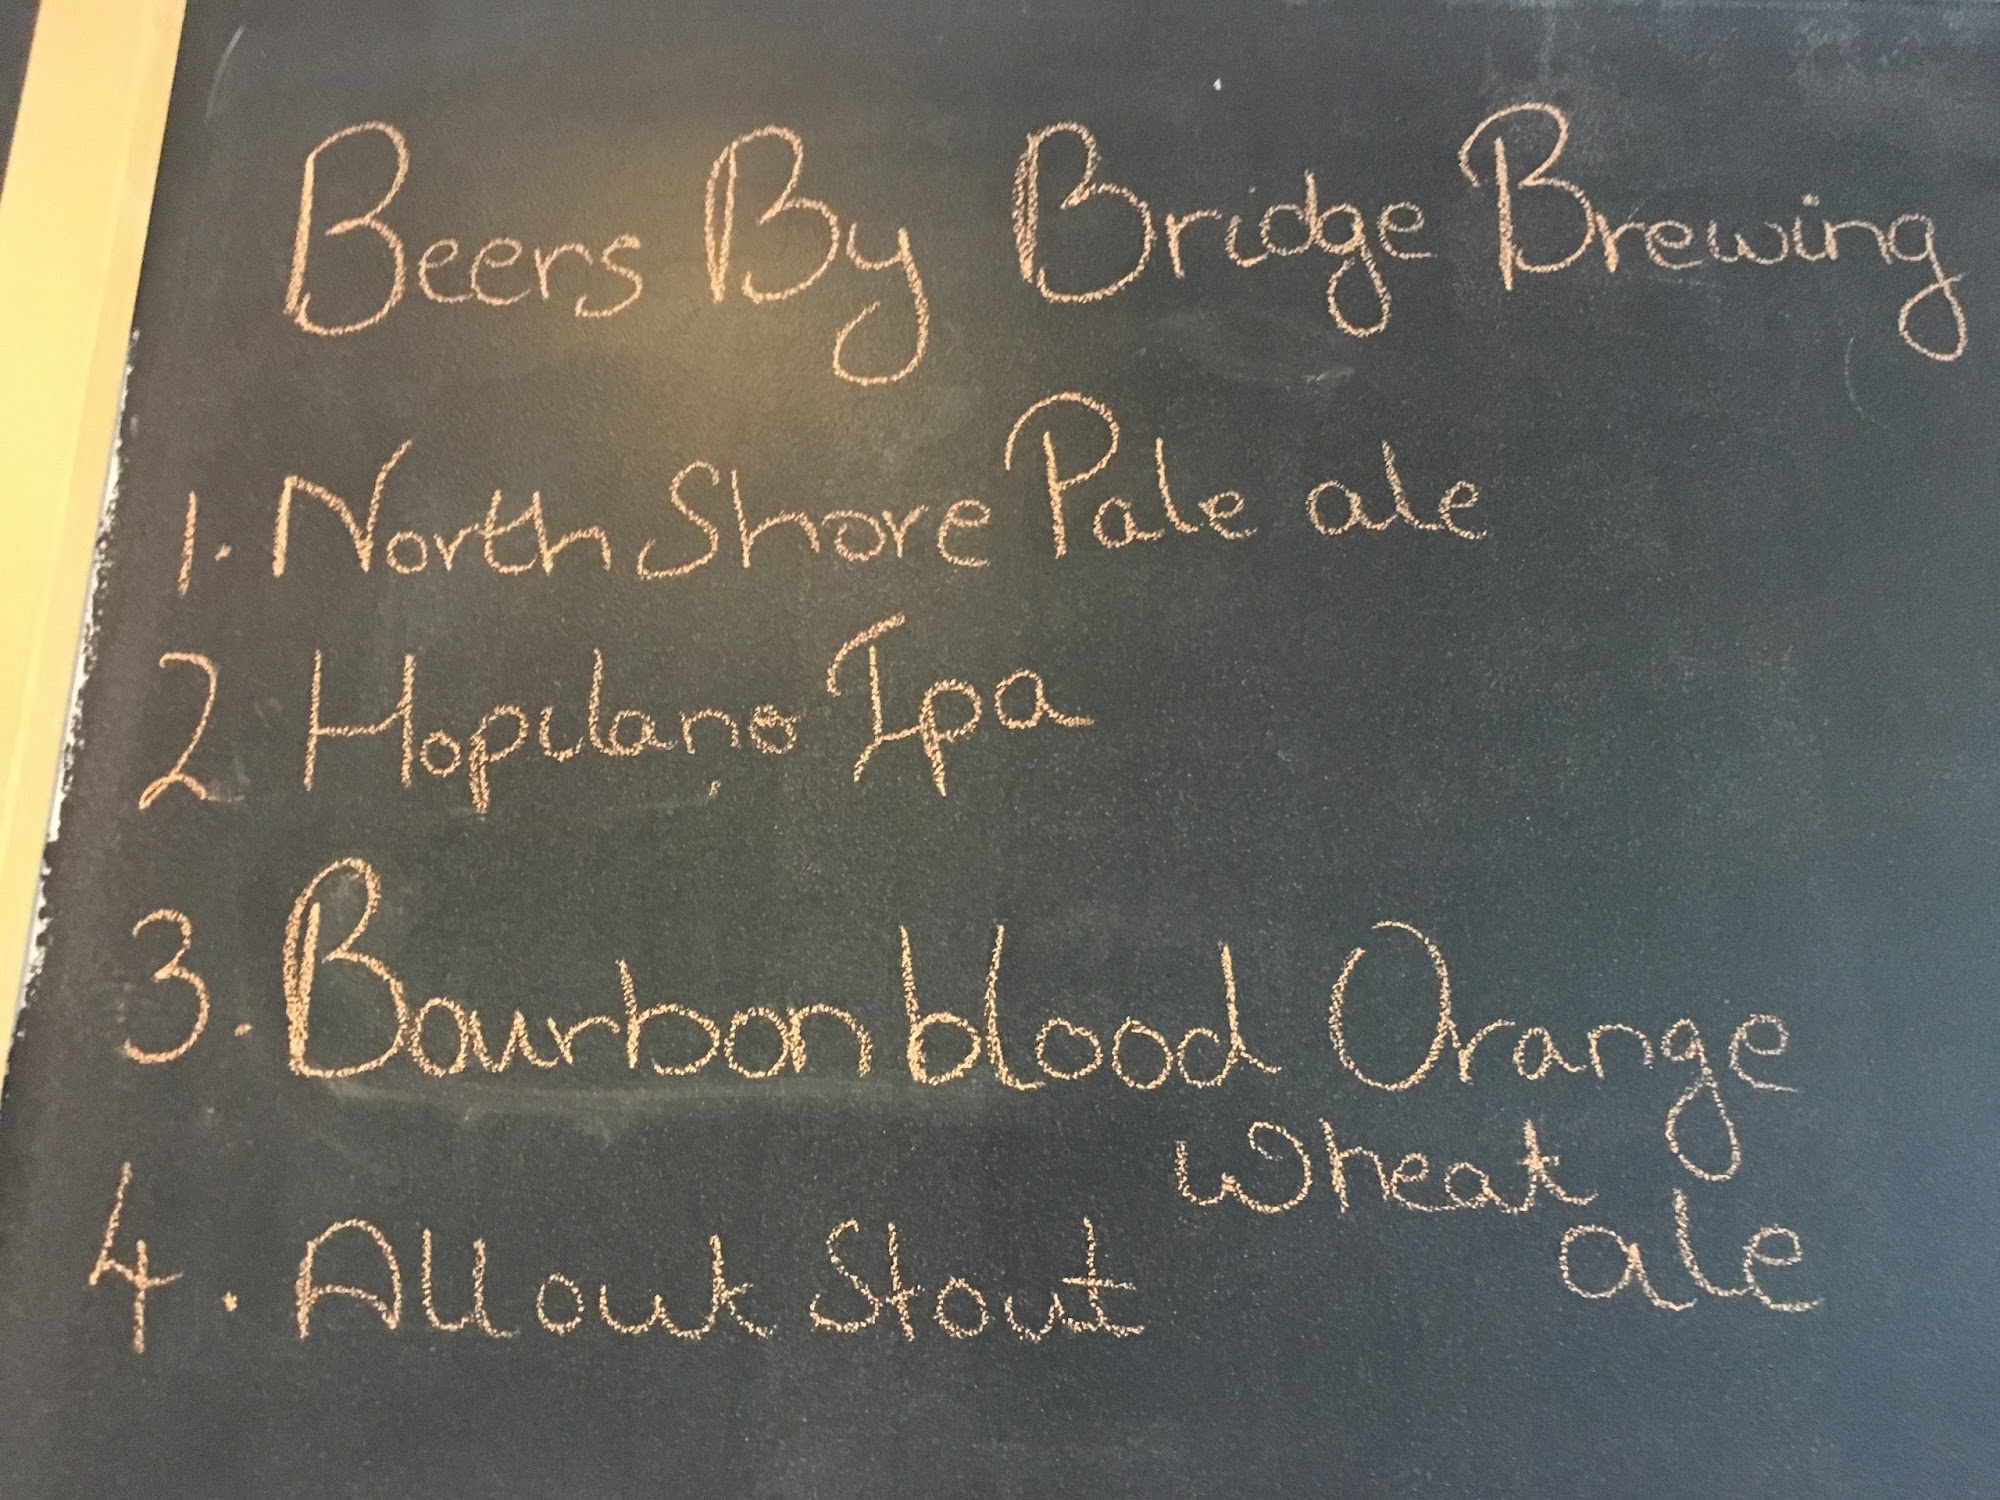 Beers By Bridge Brewing
1. North Shore Pale ale
2 Hopilano Ipa
3. Bourbon blood Orange
wheat
ale
4. All out Stout